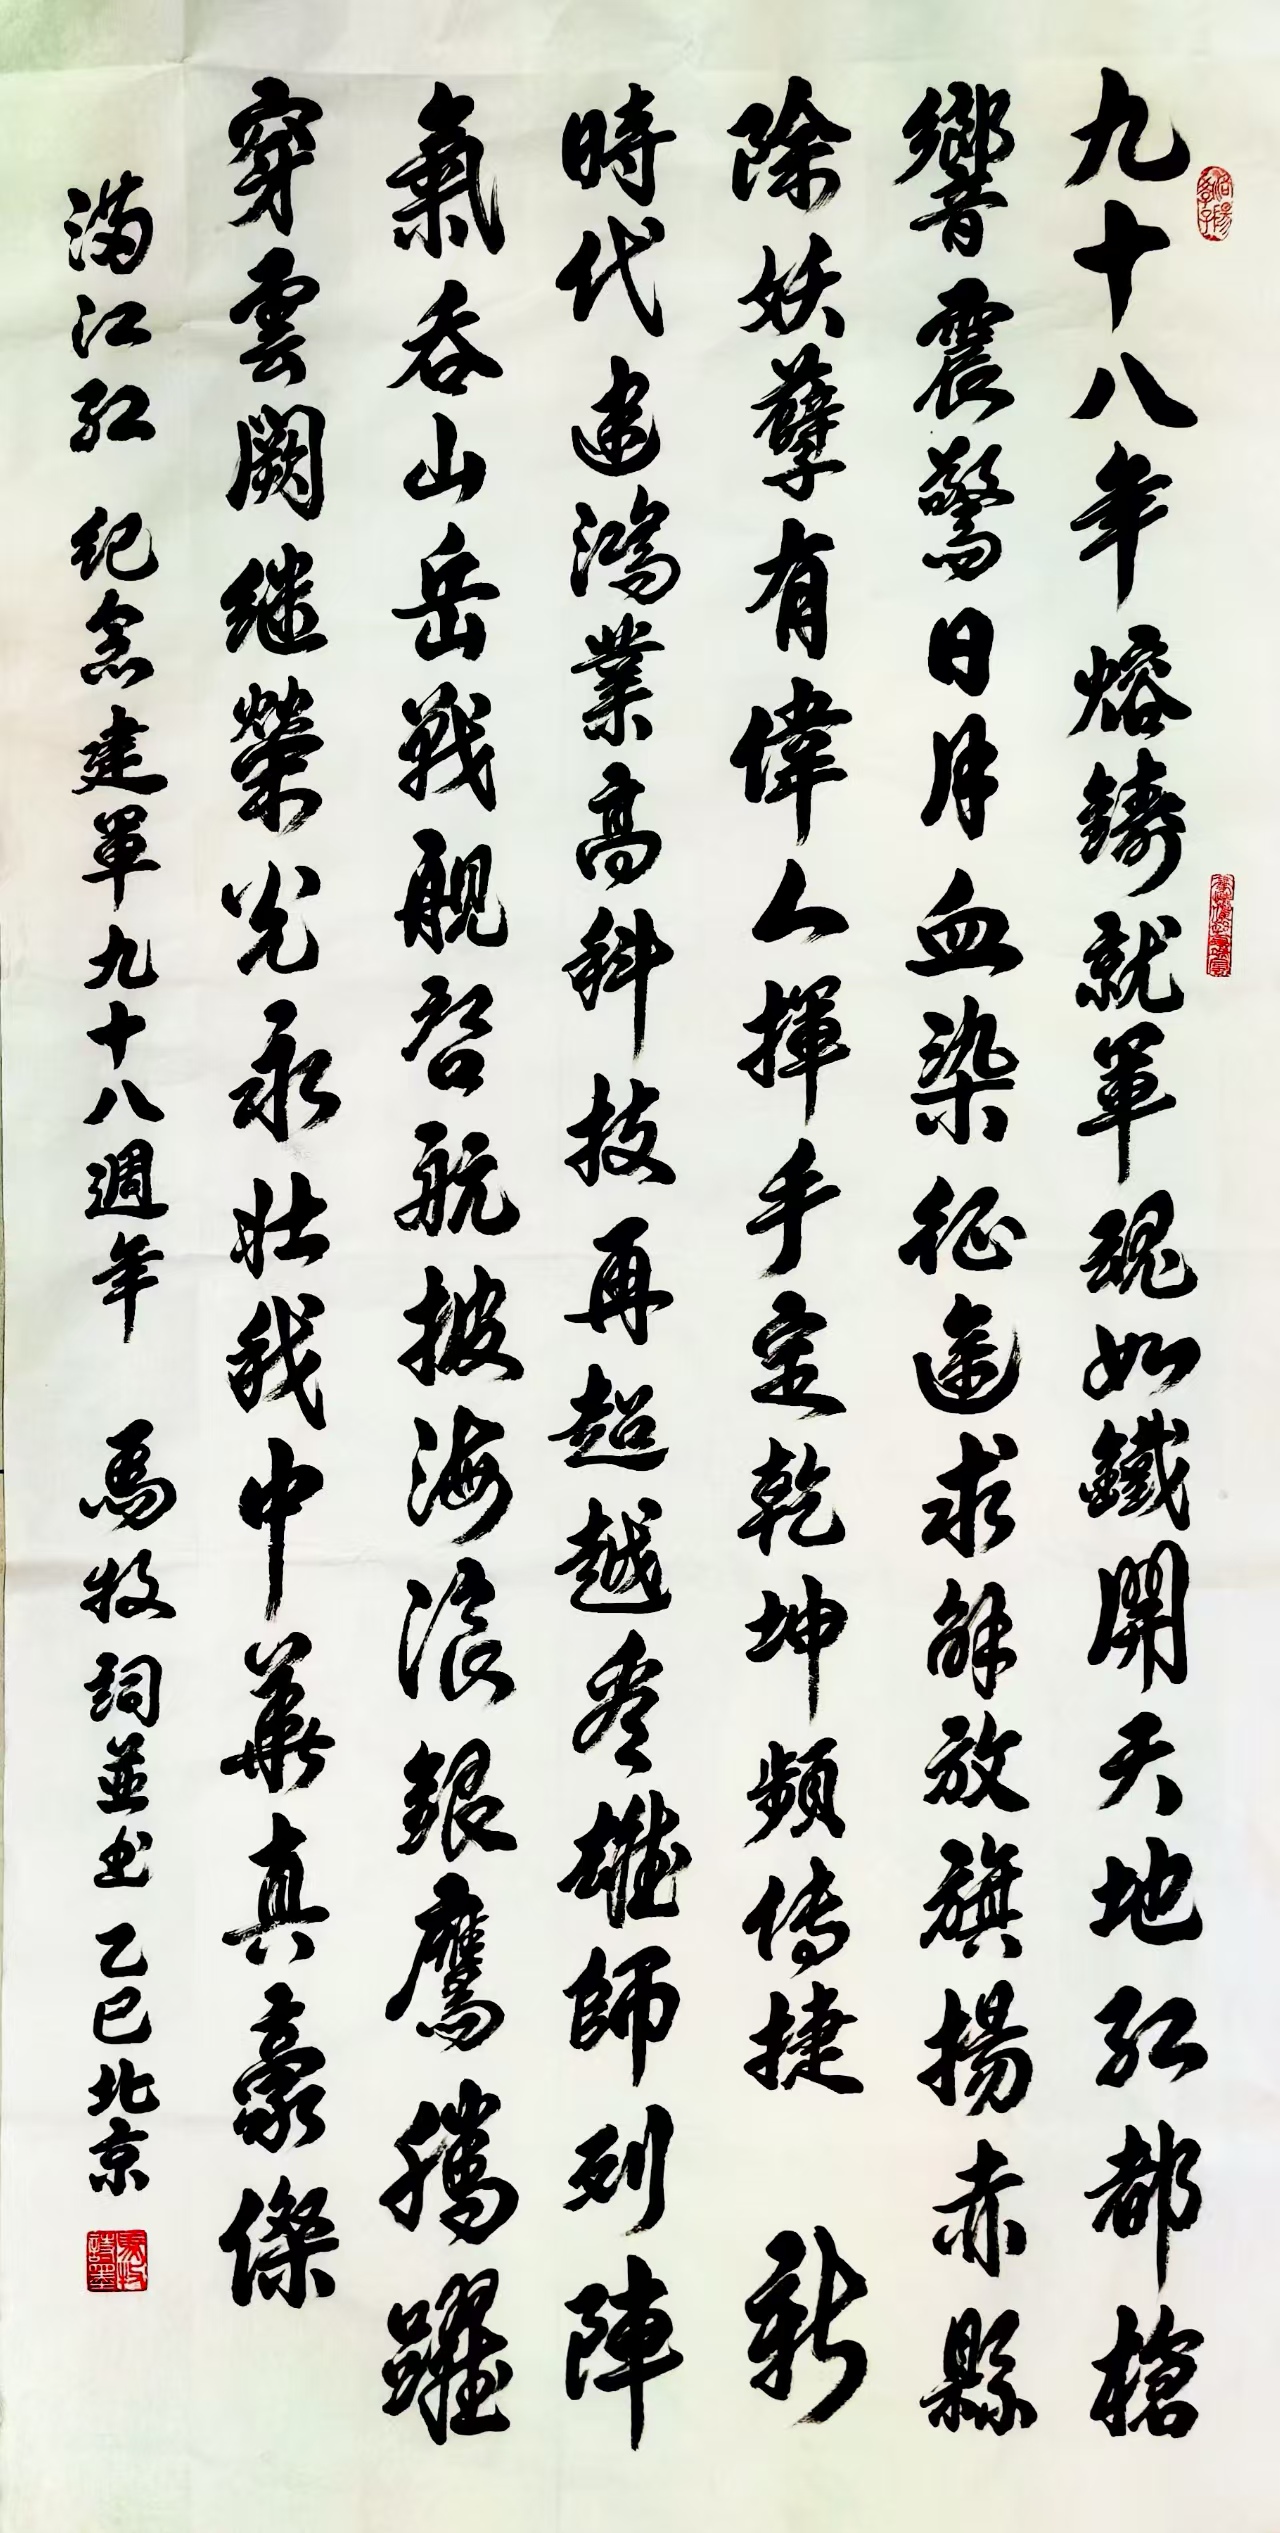 九十八年熔鑄就軍魂如鐵開天地紅都槍
響音震驚日月血染征途求解放旗揚赤縣
除妖孽有偉人揮手定乾坤頻傳捷 新
時代建鴻業高科技再超越看雄師列陣
氣吞山岳戰舰啓航披海浪銀鷹騰躍
穿雲闕继榮光永壯我中華真豪傑
满江紅 纪念建軍九十八週年 馬牧詞並书 乙巳北京